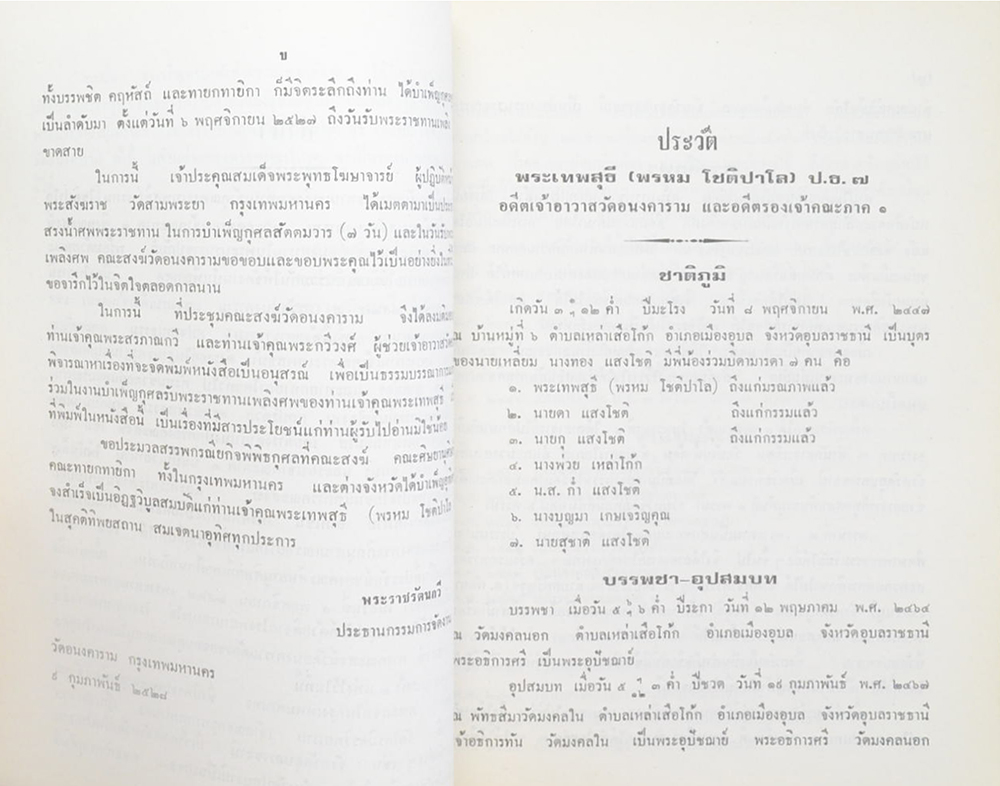 บ
ทั้งบรรพชิต คฤหัสถ์ และทายกทายิกา ก็มีจิตระลึกถึงท่าน ได้บำเพ็ญกุศล
เป็นลำดับมา ตั้งแต่วันที่ ๖ พฤศจิกายน ๒๕๒๗ ถึงวันรับพระราชทานเพลิง
ขาดสาย
ในการนี้ เจ้าประคุณสมเด็จพระพุทธโฆษาจารย์ ผู้ปฏิบัติหน้า
พระสังฆราช วัดสามพระยา กรุงเทพมหานคร ได้เมตตามาเป็นประธาน
สรงน้ำศพพระราชทาน ในการบำเพ็ญกุศลสัตตมวาร (๗ วัน) และในวันรับพระ
เพลิงศพ คณะสงฆ์วัดอนงคารามขอขอบและขอบพระคุณไว้เป็นอย่างยิ่งในที่นี้
ขอจาริกไว้ในจิตใจตลอดกาลนาน
ในการนี้ ที่ประชุมคณะสงฆ์วัดอนงคาราม จึงได้ลงมติมอบ
ท่านเจ้าคุณพระสรภาณกวี และท่านเจ้าคุณพระกวีวงศ์ ผู้ช่วยเจ้าอาวาสวัด
พิจารณาหาเรื่องที่จะจัดพิมพ์หนังสือเป็นอนุสรณ์ เพื่อเป็นธรรมบรรณาการ
ร่วมในงานบำเพ็ญกุศลรับพระราชทานเพลิงศพของท่านเจ้าคุณพระเทพสุธี
ที่พิมพ์ในหนังสือนี้ เป็นเรื่องที่มีสารประโยชน์แก่ท่านผู้รับไปอ่านมิใช่น้อย
ขอประมวลสรรพกรณียกิจพิพิธกุศลที่คณะสงฆ์ คณะศิษยานุศิษย์
คณะทายกทายิกา ทั้งในกรุงเทพมหานคร และต่างจังหวัดได้บำเพ็ญอุทิศ
จงสำเร็จเป็นอิฏฐวิบูลสมบัติแก่ท่านเจ้าคุณพระเทพสุธี (พรหม โชติปาโล)
ในสุคติทิพยสถาน สมเจตนาอุทิศทุกประการ
พระราชรัตนกวี
ประธานกรรมการจัดงาน
วัดอนงคาราม กรุงเทพมหานคร
๙ กุมภาพันธ์ ๒๕๒๘
ประวัติ
พระเทพสุธี (พรหม โชติปาโล) ป.ธ. ๗
อดีตเจ้าอาวาสวัดอนงคาราม และอดีตรองเจ้าคณะภาค ๑
ชาติภูมิ
เกิดวัน ๓ ๑ ฯ ๑๒ ค่ำ ปีมะโรง วันที่ ๘ พฤศจิกายน พ.ศ. ๒๔๔๗
ณ บ้านหมู่ที่ ๖ ตำบลเหล่าเสือโก้ก อำเภอเมืองอุบล จังหวัดอุบลราชธานี เป็นบุตร
ของนายเหลี่ยม นางทอง แสงโชติ มีพี่น้องร่วมบิดามารดา ๗ คน คือ
๑. พระเทพสุธี (พรหม โชติปาโล) ถึงแก่มรณภาพแล้ว
๒. นายดา แสงโชติ ถึงแก่กรรมแล้ว
๓. นายกุ แสงโชติ ถึงแก่กรรมแล้ว
๔. นางพ่วย เหล่าโก้ก
๕. น.ส. ก่ำ แสงโชติ
๖. นางบุญมา เกษเจริญคุณ
๗. นายสุชาติ แสงโชติ
บรรพชา-อุปสมบท
บรรพชา เมื่อวัน ๕ ฯ ๖ ค่ำ ปีระกา วันที่ ๑๒ พฤษภาคม พ.ศ. ๒๔๖๔
ณ วัดมงคลนอก ตำบลเหล่าเสือโก้ก อำเภอเมืองอุบล จังหวัดอุบลราชธานี
พระอธิการศรี เป็นพระอุปัชฌาย์
อุปสมบท เมื่อวัน ๕ ฯ ๑๒ ๓ ค่ำ ปีชวด วันที่ ๑๙ กุมภาพันธ์ พ.ศ. ๒๔๖๗
ณ พัทธสีมาวัดมงคลใน ตำบลเหล่าเสือโก้ก อำเภอเมืองอุบล จังหวัดอุบลราชธานี
จ้าอธิการทัน วัดมงคลใน เป็นพระอุปัชฌาย์ พระอธิการศรี วัดมงคลนอก